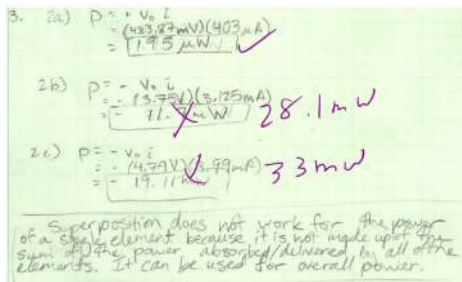 3. 2a) P = + Vo i
= (483.87mV)(403 μA)
= 195 μW
2b) P = - Vo i
= - (3.75V)(3.125mA)
= - 11.7 mW 28.1 mW
2c) P = - Vo i
= - (4.79V)(3.99mA) 33 mW
= - 19.11
Superpostion does not work for the power
of a single element because it is not made up of the
sum of the power absorbed/delivered by all of the
elements. It can be used for overall power.